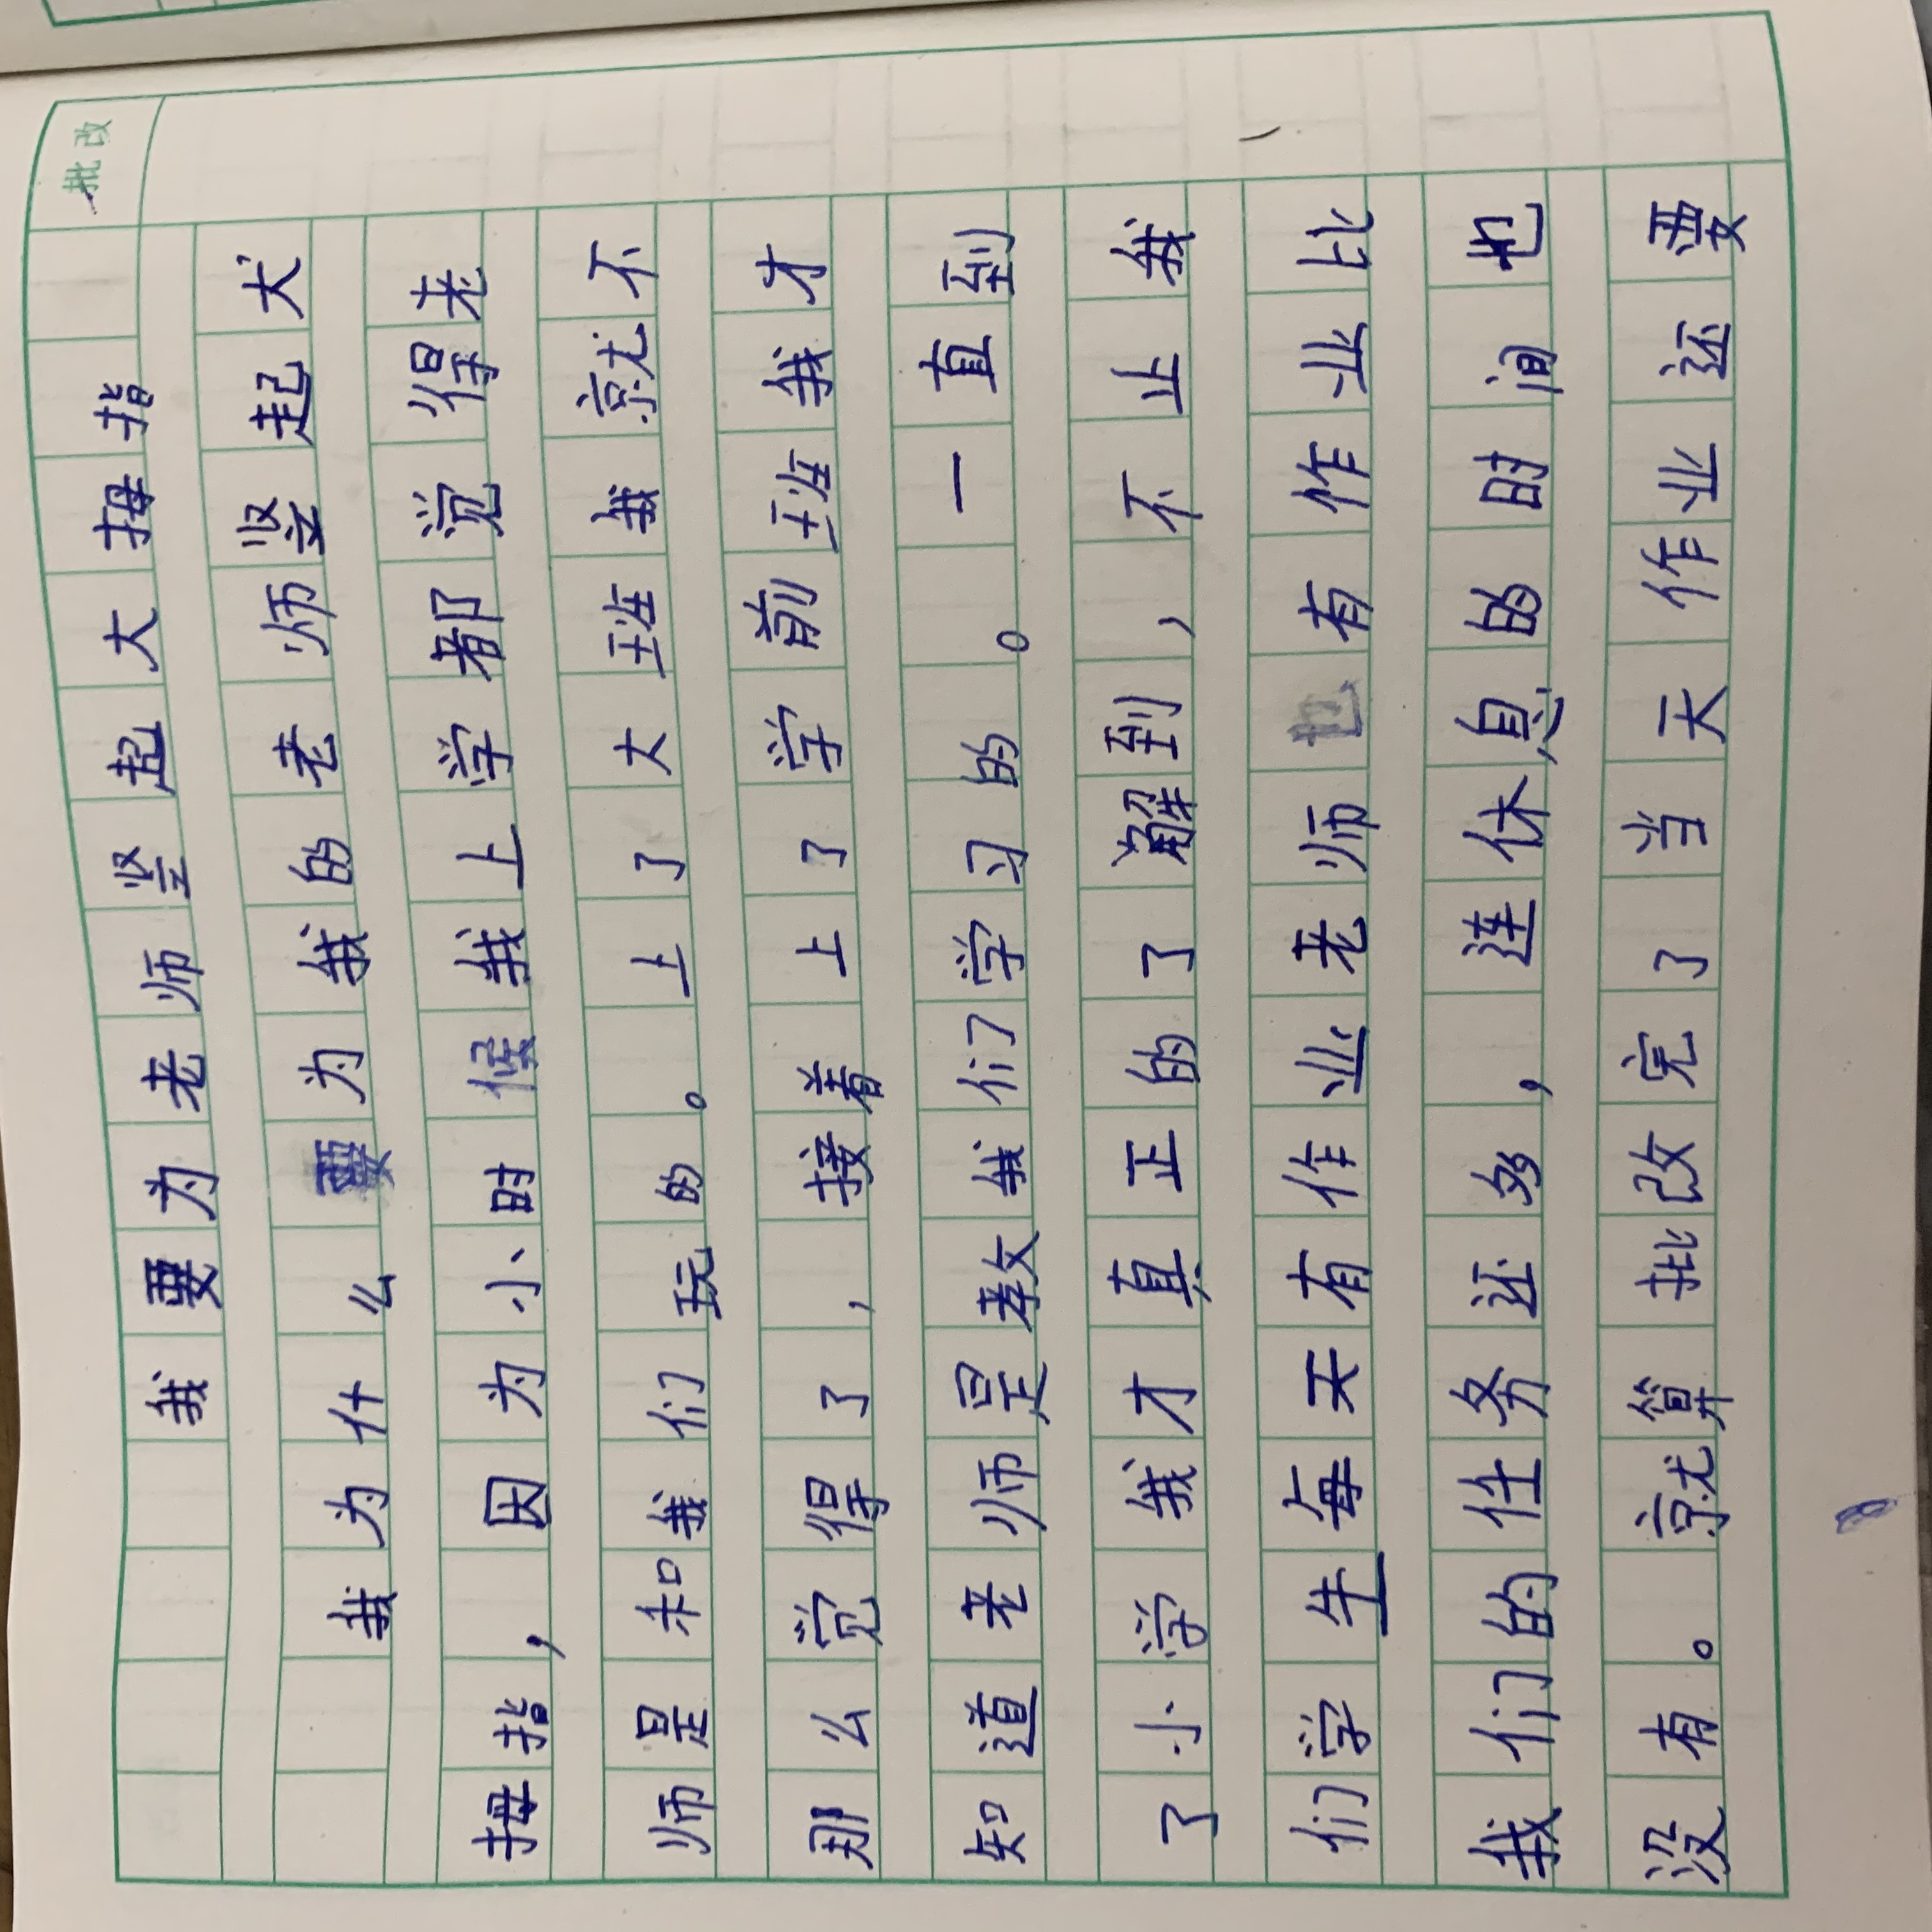 批改
我要为老师竖起大拇指
我为什么要为我的老师竖起犬
拇指，因为小时候我上学都觉得老
师是和我们玩的。上了大班我就不
那么觉得了，接着上了学前班我才
知道老师是教我们学习的。一直到
了小学我才真正的了解到，不止我
们学生每天有作业老师也有作业比
我们的任务还多，连休息的时间也
没有。就算批改完了当天作业还要